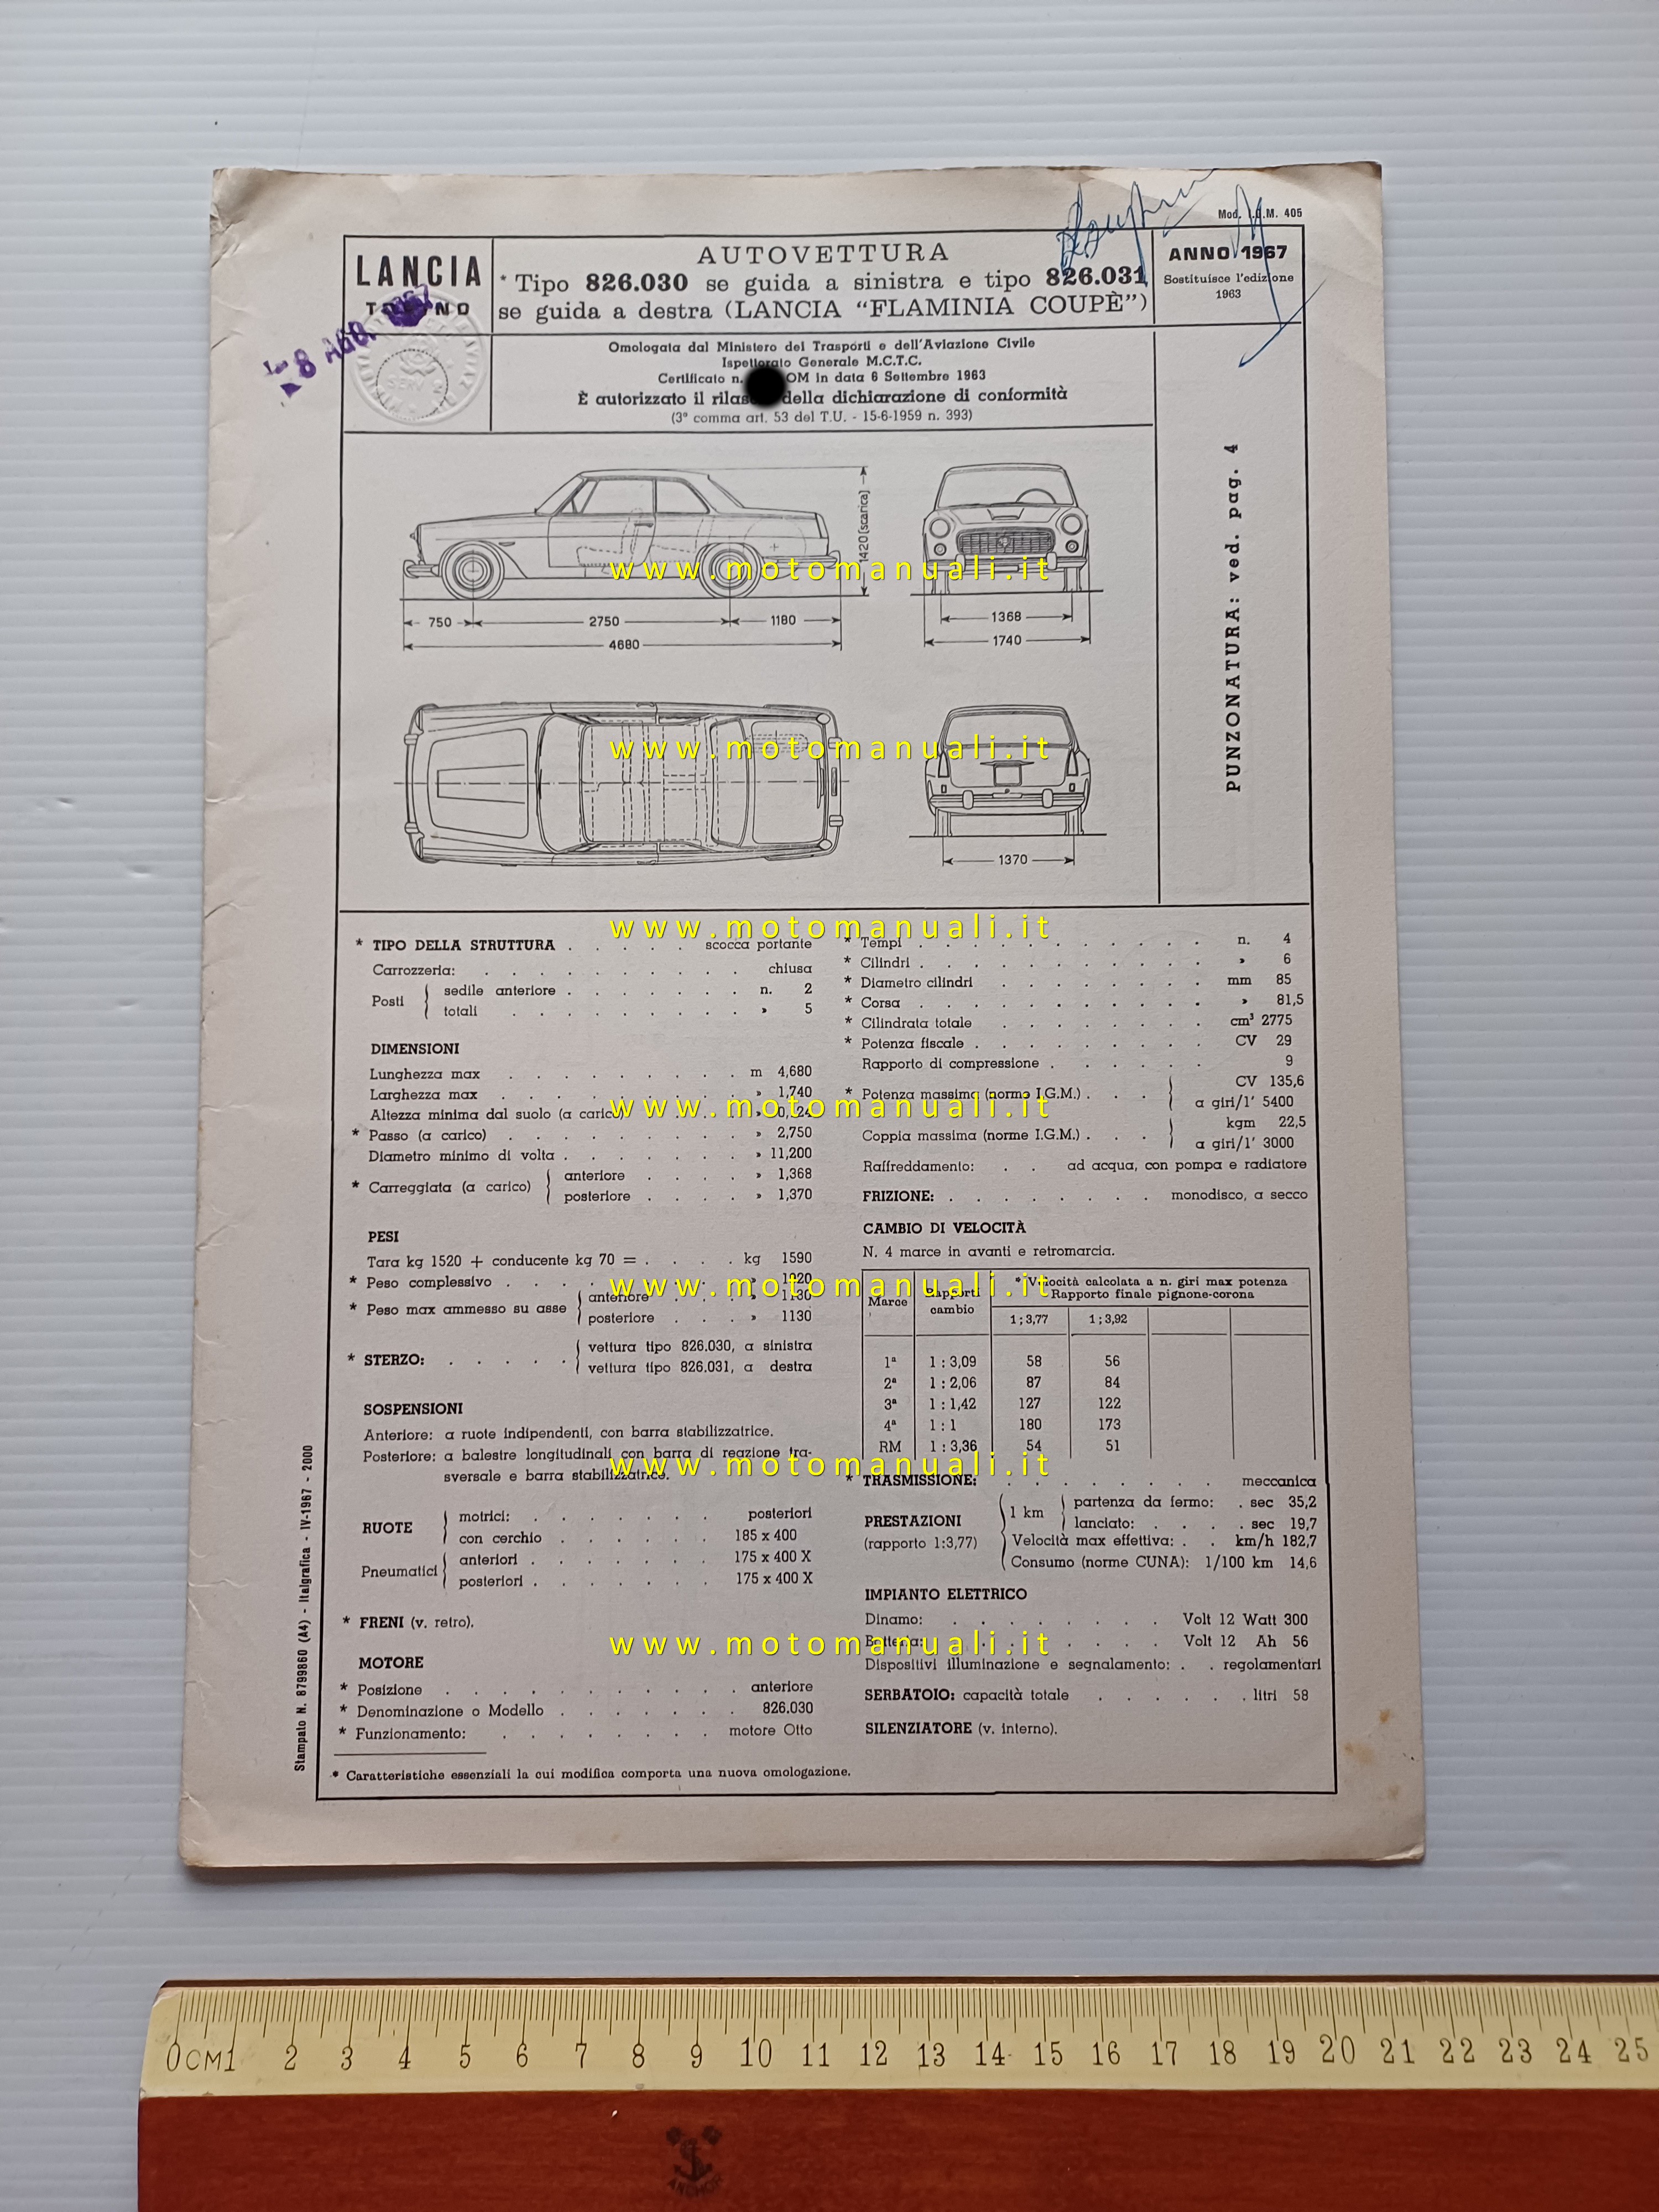 Mod. I.G.M. 405
LANCIA
TORINO
AUTOVETTURA
* Tipo 826.030 se guida a sinistra e tipo 826.031
se guida a destra (LANCIA “FLAMINIA COUPÈ”)
ANNO 1967
Sostituisce l'edizione
1963
8 AGO. 1967
Omologata dal Ministero dei Trasporti e dell'Aviazione Civile
Ispettorato Generale M.C.T.C.
Certificato n. OM in data 6 Settembre 1963
È autorizzato il rilascio della dichiarazione di conformità
(3° comma art. 53 del T.U. - 15-6-1959 n. 393)
PUNZONATURA: ved. pag. 4
1420 (scarica)
750 2750 1180
4680
1368
1740
1370
www.motomanuali.it
www.motomanuali.it
www.motomanuali.it
www.motomanuali.it
www.motomanuali.it
www.motomanuali.it
www.motomanuali.it
* TIPO DELLA STRUTTURA . . . . . scocca portante
Carrozzeria: . . . . . . . . . . chiusa
Posti
sedile anteriore . . . . . . . n. 2
totali . . . . . . . . . » 5
DIMENSIONI
Lunghezza max . . . . . . . . . m 4,680
Larghezza max . . . . . . . . . » 1,740
Altezza minima dal suolo (a carico)
* Passo (a carico) . . . . . . . . . » 2,750
Diametro minimo di volta . . . . . . . » 11,200
* Carreggiata (a carico)
anteriore . . . . » 1,368
posteriore . . . . » 1,370
PESI
Tara kg 1520 + conducente kg 70 = . . . . kg 1590
* Peso complessivo . . . . . . . . . »
* Peso max ammesso su asse
anteriore . . . . » 1130
posteriore . . . » 1130
* STERZO: . . . . .
vettura tipo 826.030, a sinistra
vettura tipo 826.031, a destra
SOSPENSIONI
Anteriore: a ruote indipendenti, con barra stabilizzatrice.
Posteriore: a balestre longitudinali con barra di reazione tra-
sversale e barra stabilizzatrice.
RUOTE
motrici: . . . . . . . posteriori
con cerchio . . . . . . 185 x 400
Pneumatici
anteriori . . . . . . . 175 x 400 X
posteriori . . . . . . . 175 x 400 X
* FRENI (v. retro).
MOTORE
* Posizione . . . . . . . . . . . anteriore
* Denominazione o Modello . . . . . . . 826.030
* Funzionamento: . . . . . . . . motore Otto
* Tempi . . . . . . . . . . . n. 4
* Cilindri . . . . . . . . . . . » 6
* Diametro cilindri . . . . . . . . mm 85
* Corsa . . . . . . . . . . . » 81,5
* Cilindrata totale . . . . . . . . cm³ 2775
* Potenza fiscale . . . . . . . . . CV 29
Rapporto di compressione . . . . . . 9
* Potenza massima (norme I.G.M.) . . .
CV 135,6
a giri/1' 5400
Coppia massima (norme I.G.M.) . . .
kgm 22,5
a giri/1' 3000
Raffreddamento: . . ad acqua, con pompa e radiatore
FRIZIONE: . . . . . . . . monodisco, a secco
CAMBIO DI VELOCITÀ
N. 4 marce in avanti e retromarcia.
Marce
Rapporti
cambio
* Velocità calcolata a n. giri max potenza
Rapporto finale pignone-corona
1 : 3,77 1 : 3,92
1ª 1 : 3,09 58 56
2ª 1 : 2,06 87 84
3ª 1 : 1,42 127 122
4ª 1 : 1 180 173
RM 1 : 3,36 54 51
* TRASMISSIONE: . . . . . . . . meccanica
PRESTAZIONI
(rapporto 1:3,77)
1 km
partenza da fermo: . sec 35,2
lanciato: . . . . sec 19,7
Velocità max effettiva: . . km/h 182,7
Consumo (norme CUNA): 1/100 km 14,6
IMPIANTO ELETTRICO
Dinamo: . . . . . . . . . Volt 12 Watt 300
Batteria: . . . . . . . . Volt 12 Ah 56
Dispositivi illuminazione e segnalamento: . . regolamentari
SERBATOIO: capacità totale . . . . . . litri 58
SILENZIATORE (v. interno).
* Caratteristiche essenziali la cui modifica comporta una nuova omologazione.
Stampato N. 8799860 (A4) - Italgrafica - IV-1967 - 2000
0 CM 1 2 3 4 5 6 7 8 9 10 11 12 13 14 15 16 17 18 19 20 21 22 23 24 25
ANCHOR